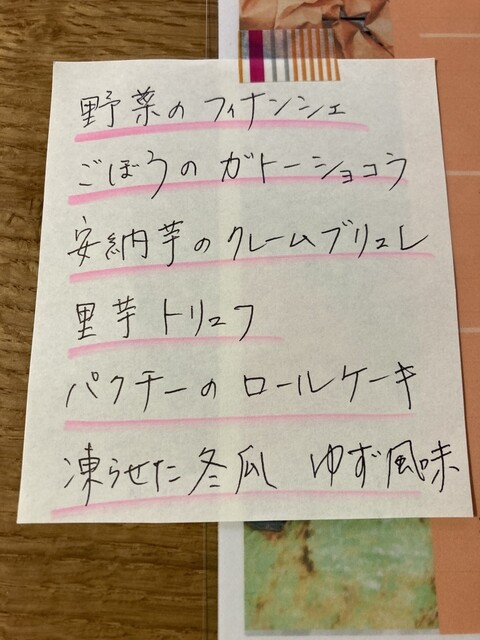 野菜のフィナンシェ
ごぼうのガトーショコラ
安納芋のクレームブリュレ
里芋トリュフ
パクチーのロールケーキ
凍らせた冬瓜 ゆず風味